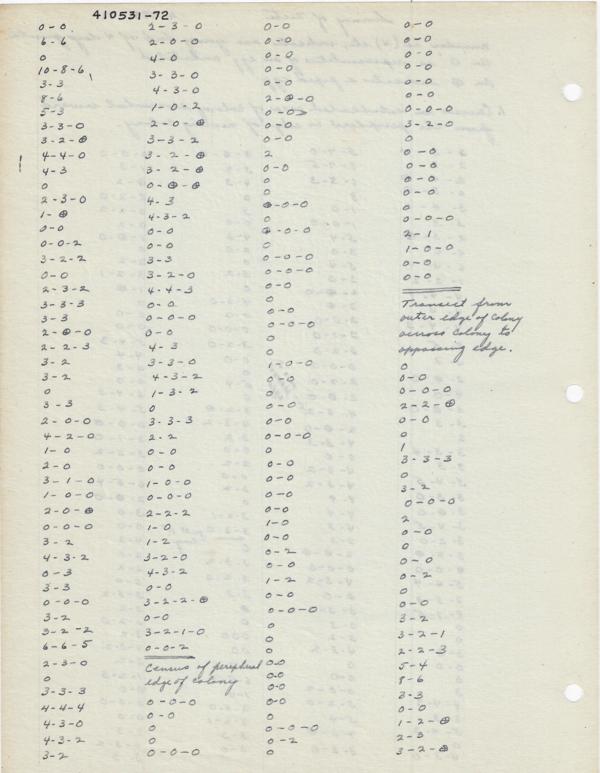 410531-72
0-0
6-6
0
10-8-6
3-3
8-6
5-3
3-3-0
3-2-⊕
4-4-0
4-3
0
2-3-0
1-⊕
0-0
0-0-2
3-2-2
0-0
2-3-2
3-3-3
3-3
2-⊕-0
2-2-3
3-2
3-2
0
3-3
2-0-0
4-2-0
1-0
2-0
3-1-0
1-0-0
2-0-⊕
0-0-0
3-2
4-3-2
0-3
3-3
0-0-0
3-2
3-2-2
6-6-5
2-3-0
0
3-3-3
4-4-4
4-3-0
4-3-2
3-2
2-3-0
2-0-0
4-0
3-3-0
4-3-0
1-0-2
2-0-⊕
3-3-2
3-2-⊕
3-2-⊕
0-⊕-⊕
4-3
4-3-2
0-0
0-0
3-3
3-2-0
4-4-3
0-0
0-0-0
0-0
4-3
3-3-0
4-3-2
1-3-2
0
3-3-3
2-2
0-0
0-0
1-0-0
0-0-0
2-2-2
1-0
1-2
3-2-0
4-3-2
0-0
3-2-2-⊕
0-0
3-2-1-0
0-0-2
Census of peripheal
edge of colony
0-0-0
0-0
0
0-0-0
0-0
0-0
0-0
0-0
0-0
2-⊕-0
0-0
0-0
0
2
0-0
0
⊕-0-0
0
⊕-0-0
0
0-0-0
0-0-0
0-0
0
0-0
0-0-0
0
0
1-0-0
0-0
0
0-0
0-0
0-0-0
0
0-0
0-0
0-0
0-0
1-0
0-0
0-2
0-0
1-2
0-0
0-0-0
0
0
0
0-0
0-0
0-0
0-0
0
0-0-0
0-2
0
0-0
0-0
0-0
0-0
0-0
0-0
0-0-0
3-2-0
0
0-0
0-0
0-0
0-0
0
0-0-0
2-1
1-0-0
0-0
0-0
Transect from
outer edge of colony
across colony to
oppossing edge.
0
0-0
0-0-0
2-2-⊕
0-0
0
1
3-3-3
0
3-2
0-0-0
2
0-0
0
0-0
0-2
0
0-0
3-2
3-2-1
2-2-3
5-4
8-6
3-3
0-0
1-2-⊕
2-3
3-2-⊕